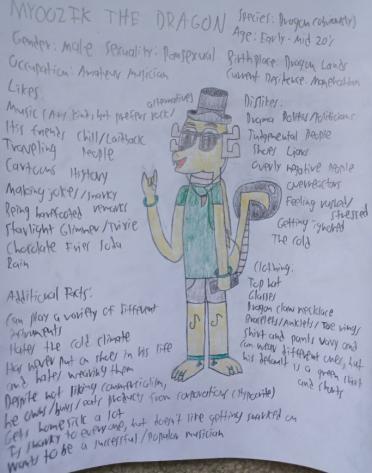 MYOOZIK THE DRAGON
Species: Dragon
Age: Early-Mid 20's
Gender: Male Sexuality: Pansexual
Birthplace: Dragon Lands
Occupation: Amateur Musician
Current Residence:
Likes:
Music (Any kind, but prefers rock/
alternative)
His friends Chill/Laidback
People
Traveling
Cartoons History
Making jokes/snarky
remarks
Being barefooted
Starlight Glimmer/Trixie
Chocolate Fries Soda
Rain
Dislikes:
Drama Politics/Politicians
Judgemental People
Shoes Liars
Overly negative people
Overreactors
Feeling rushed/
stressed
Getting ignored
The cold
Clothing:
Top hat
Glasses
Dragon claw necklace
Bracelets/Anklets/Toe rings
Shirt and pants vary and
can wear different ones, but
his default is a green shirt
and shorts
Additional Facts:
Can play a variety of different
instruments
Hates the cold climate
Has never put on shoes in his life
and hates wearing them
Despite not liking commercialism,
he owns/buys/eats products from corporations (Hypocrite)
Gets homesick a lot
Is snarky to everyone, but doesn't like getting snarked on
Wants to be a successful/popular musician